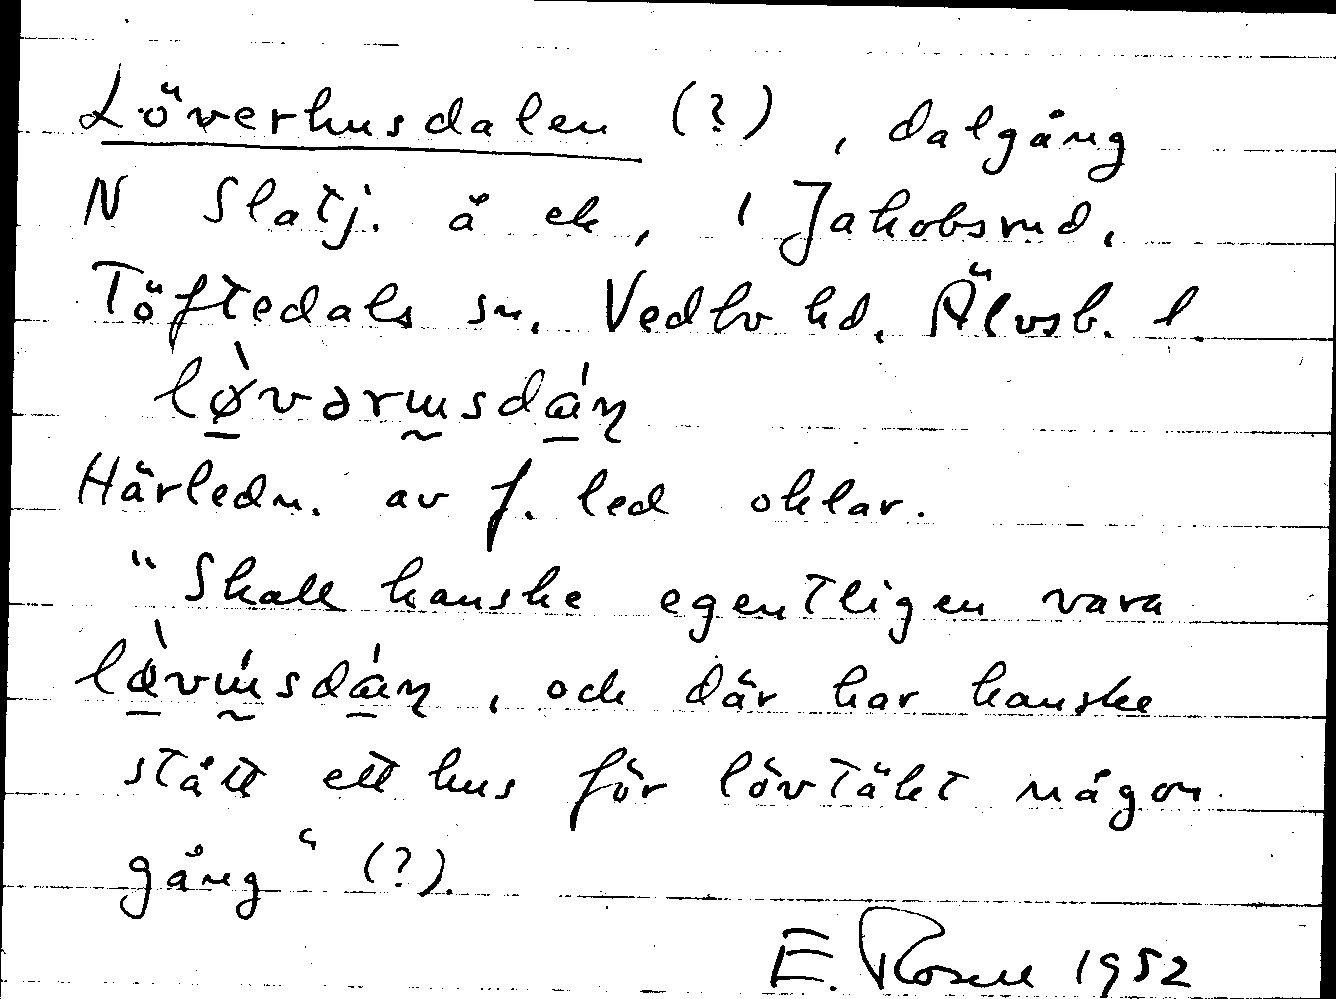 Löverhusdalen (?), dalgång
N Slätj. å ek, i Jakobsrud,
Töftedals sn. Vedbo hd. Älvsb. l.
lø̀vərɯsdáɳ
Härledn. av f. led oklar.
"Skall kanske egentligen vara
lø̀vɯ́sdáɳ, och där har kanske
stått ett hus för lövtäkt någon
gång" (?).
E. Rosell 1952